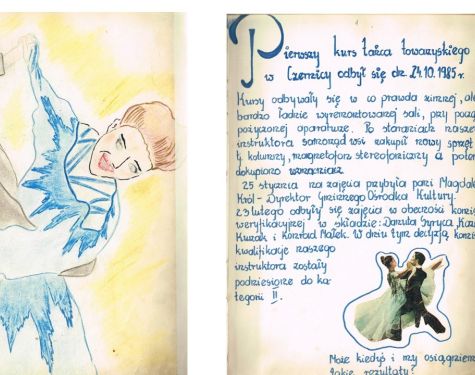 Pierwszy kurs tańca towarzyskiego
w Czernicy odbył się dn. 24.10.1985r.
Kursy odbywały się w co prawda zimnej, ale
bardzo ładnie wyremontowanej sali, przy
pożyczonej aparaturze. Po staraniach
instruktora samorząd wsi zakupił nowy sprzęt
kolumny, magnetofon stereofoniczny a
dokupiono wzmacniacz.
25 stycznia na zajęcia przybyła pani
Król - Dyrektor Gminnego Ośrodka Kultury.
23 lutego odbyły się zajęcia w obecności
weryfikacyjnej w składzie: Danuta Gyryca,
Kuzak i Konrad Małek. W dniu tym decyzją
kwalifikacje naszego
instruktora zostały
podniesione do ka-
tegorii II.
Może kiedyś i my osiągniemy
takie rezultaty?